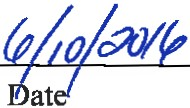 6/10/2016
Date